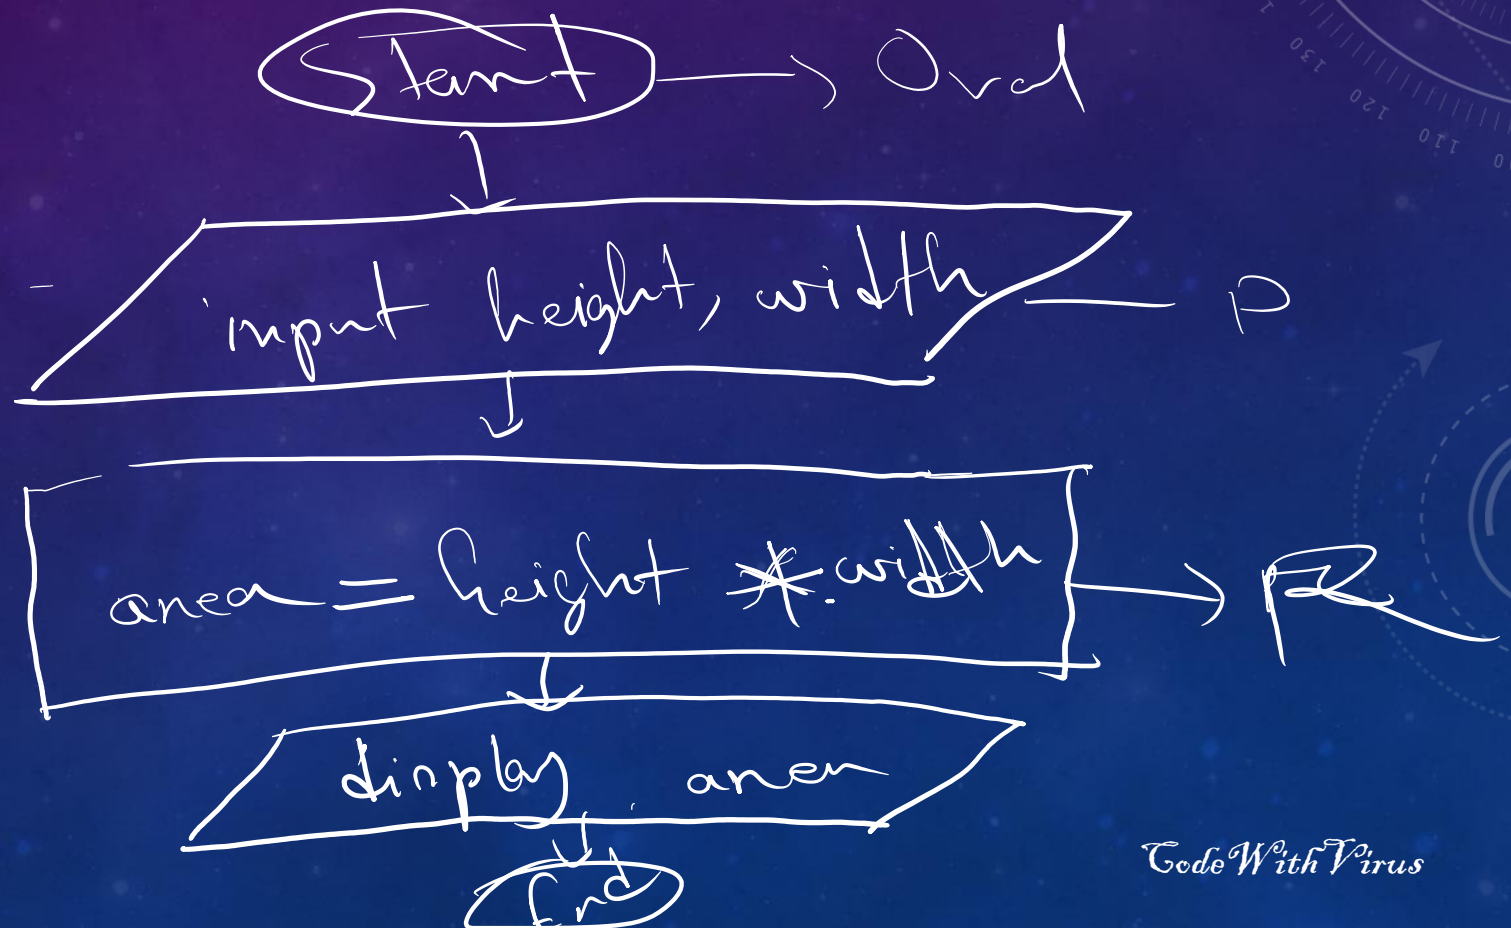 Start → Oval
input height, width — P
area = height * width → R
display area
End
CodeWithVirus
130
120
110